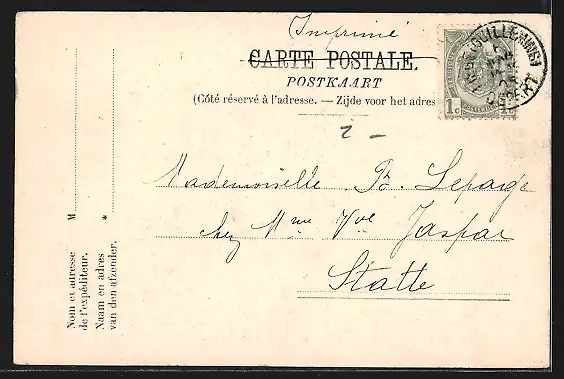 Imprimé
CARTE POSTALE.
POSTKAART
(Côté réservé à l'adresse. — Zijde voor het adres
1c
(GUILLEMINS)
DEPART
2 -
Mademoiselle B. Lepage
chez Mme Vve Jaspar
Statte
M
*
Nom et adresse
de l'expéditeur.
Naam en adres
van den afzender.